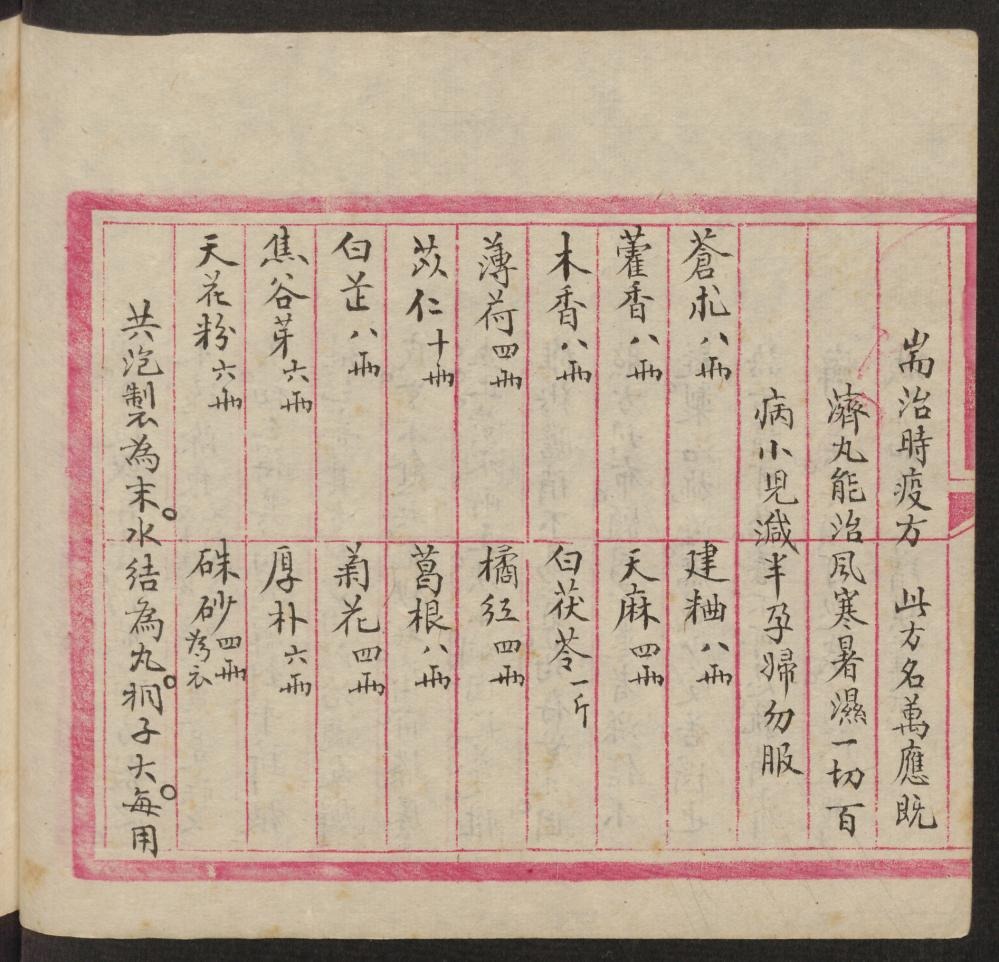 耑治時疫方　此方名萬應既
濟丸能治風寒暑濕一切百
病小児減半孕婦勿服
蒼朮八兩　建粬八兩
藿香八兩　天麻四兩
木香八兩　白茯苓一斤
薄荷四兩　橘红四兩
苡仁十兩　葛根八兩
白芷八兩　菊花四兩
焦谷芽六兩　厚朴六兩
天花粉六兩　硃砂四兩為衣
共泡製為末。水結為丸。桐子大。每用